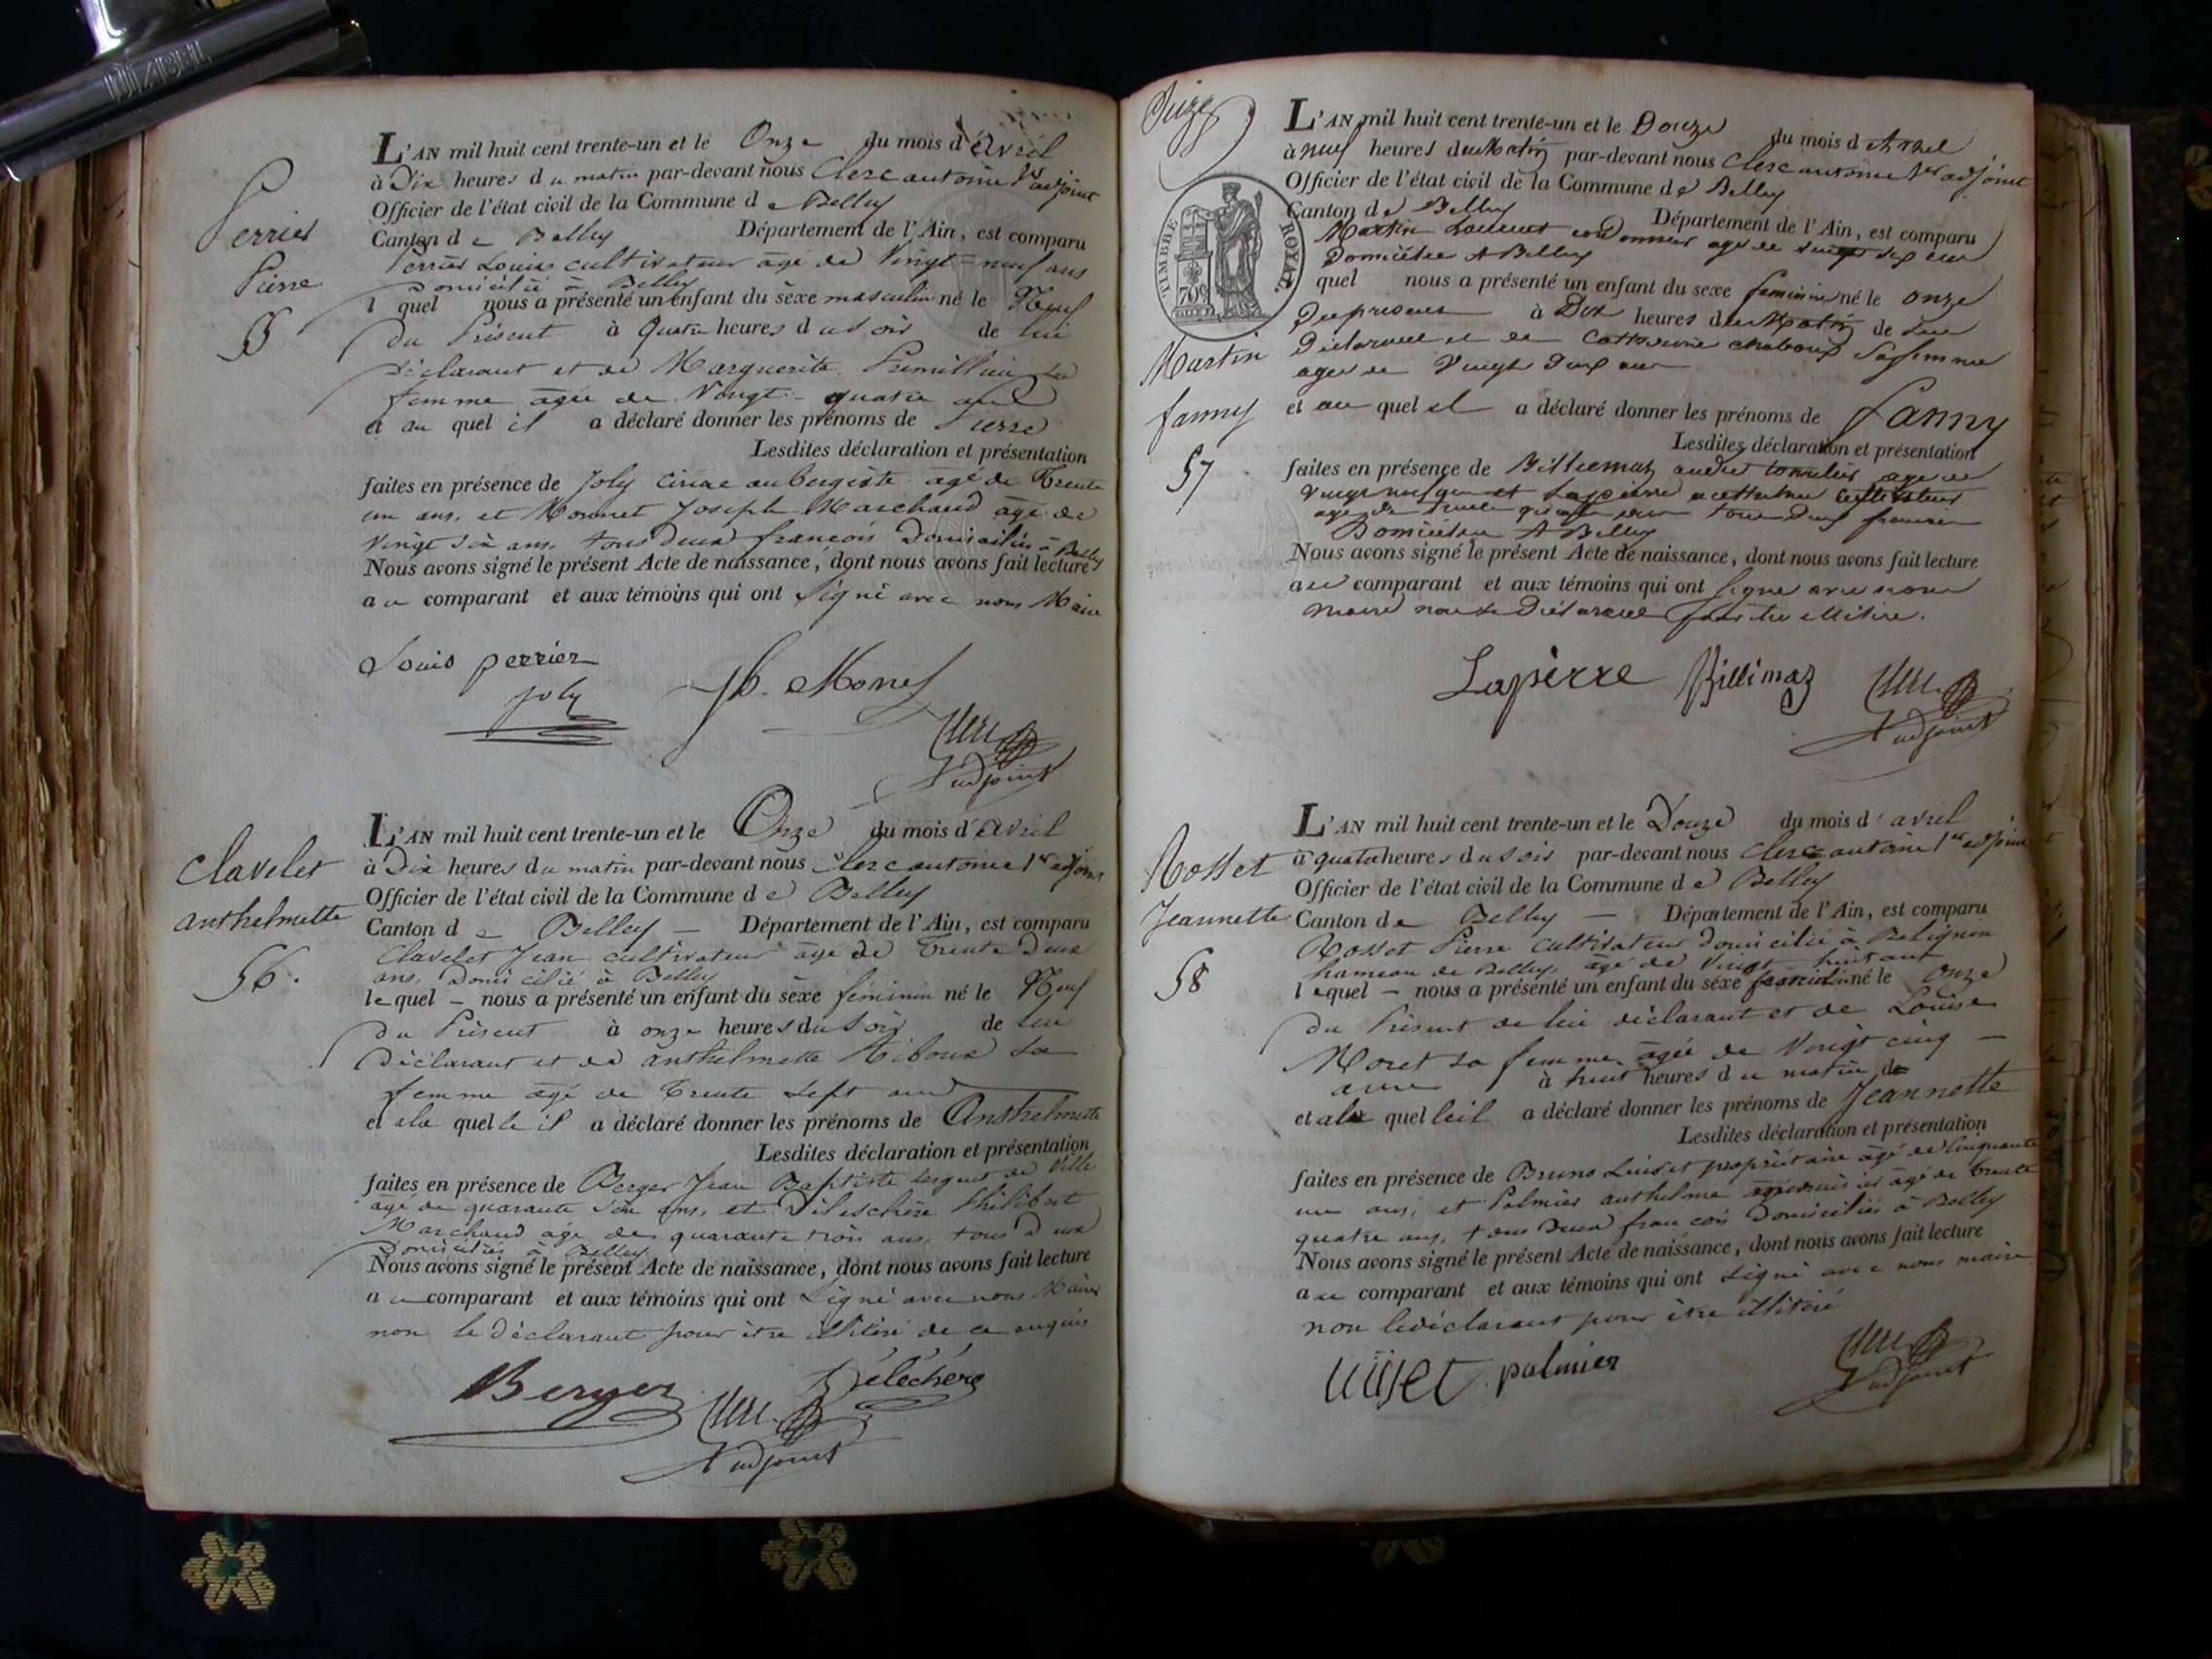 DIZABEL
Perrier
Pierre
55
L'AN mil huit cent trente-un et le Onze du mois d'avril
à Dix heures du matin par-devant nous Clerc antoine 1er adjoint
Officier de l'état civil de la Commune de Belley
Canton de Belley Département de l'Ain, est comparu
Perrier Louis cultivateur âgé de Vingt-neuf ans
Domicilié à Belley
lequel nous a présenté un enfant du sexe masculin né le Neuf
du Présent à quatre heures du soir de lui
déclarant et de Marguerite sa
femme âgée de Vingt-quatre ans
et au quel il a déclaré donner les prénoms de Pierre
Lesdites déclaration et présentation
faites en présence de Joly aubergiste âgé de Trente
un ans, et Monnet Joseph Marchand âgé de
Vingt six ans, tous deux françois Domiciliés à Belley
Nous avons signé le présent Acte de naissance, dont nous avons fait lecture
au comparant et aux témoins qui ont signé avec nous Maire
Louis perrier
joly
Clerc
adjoint
Clavelet
anthelmette
56.
L'AN mil huit cent trente-un et le Onze du mois d'avril
à Dix heures du matin par-devant nous Clerc antoine 1er adjoint
Officier de l'état civil de la Commune de Belley
Canton de Belley Département de l'Ain, est comparu
Clavelet Jean cultivateur âgé de Trente Deux
ans, Domicilié à Belley
lequel nous a présenté un enfant du sexe féminin né le Neuf
du Présent à onze heures du soir de lui
Déclarant et de anthelmette sa
femme âgé de Trente sept ans
et à la quelle il a déclaré donner les prénoms de Anthelmette
Lesdites déclaration et présentation
faites en présence de Berger Jean Baptiste sergent de Ville
âgé de quarante six ans, et Philibert
Marchand âgé de quarante trois ans, tous deux
Domiciliés à Belley
Nous avons signé le présent Acte de naissance, dont nous avons fait lecture
au comparant et aux témoins qui ont signé avec nous Maire
non le déclarant pour être illitéré de ce enquis
Berger Déléchère
Clerc
adjoint
Onze
TIMBRE ROYAL
Martin
fanny
57
L'AN mil huit cent trente-un et le Douze du mois d'Avril
à neuf heures du Matin par-devant nous Clerc antoine 1er adjoint
Officier de l'état civil de la Commune de Belley
Canton de Belley Département de l'Ain, est comparu
Martin Laurent cordonnier age de vingt ans
Domicilié A Belley
quel nous a présenté un enfant du sexe feminin né le onze
du présent à Dix heures du Matin de Lui
Déclarant et de Catherine sa femme
agée de Vingt Deux ans
et au quel il a déclaré donner les prénoms de fanny
Lesdites déclaration et présentation
faites en présence de Billiemaz andré age de
vingt neuf ans et Lapierre cultivateur
age de trente quatre ans tous deux francais
Domiciliés A Belley
Nous avons signé le présent Acte de naissance, dont nous avons fait lecture
au comparant et aux témoins qui ont signé avec nous
maire non le Déclarant pour être illitéré.
Lapierre Billimaz Clerc
adjoint
Rosset
Jeannette
58
L'AN mil huit cent trente-un et le Douze du mois d'avril
à quatre heures du soir par-devant nous Clerc antoine 1er adjoint
Officier de l'état civil de la Commune de Belley
Canton de Belley Département de l'Ain, est comparu
Rosset Pierre cultivateur Domicilié à
hameau de Belley, âgé de Vingt huit ans
lequel nous a présenté un enfant du sexe féminin né le onze
du Présent de lui déclarant et de Louise
Moret sa femme, âgée de Vingt cinq
ans à huit heures du matin de
et à la quelle il a déclaré donner les prénoms de Jeannette
Lesdites déclaration et présentation
faites en présence de Bruno Luiset propriétaire âgé de Cinquante
un ans, et Palmier anthelme âgé de trente
quatre ans, tous deux françois Domiciliés à Belley
Nous avons signé le présent Acte de naissance, dont nous avons fait lecture
au comparant et aux témoins qui ont signé avec nous maire
non le déclarant pour être illitéré
Luiset palmier Clerc
adjoint